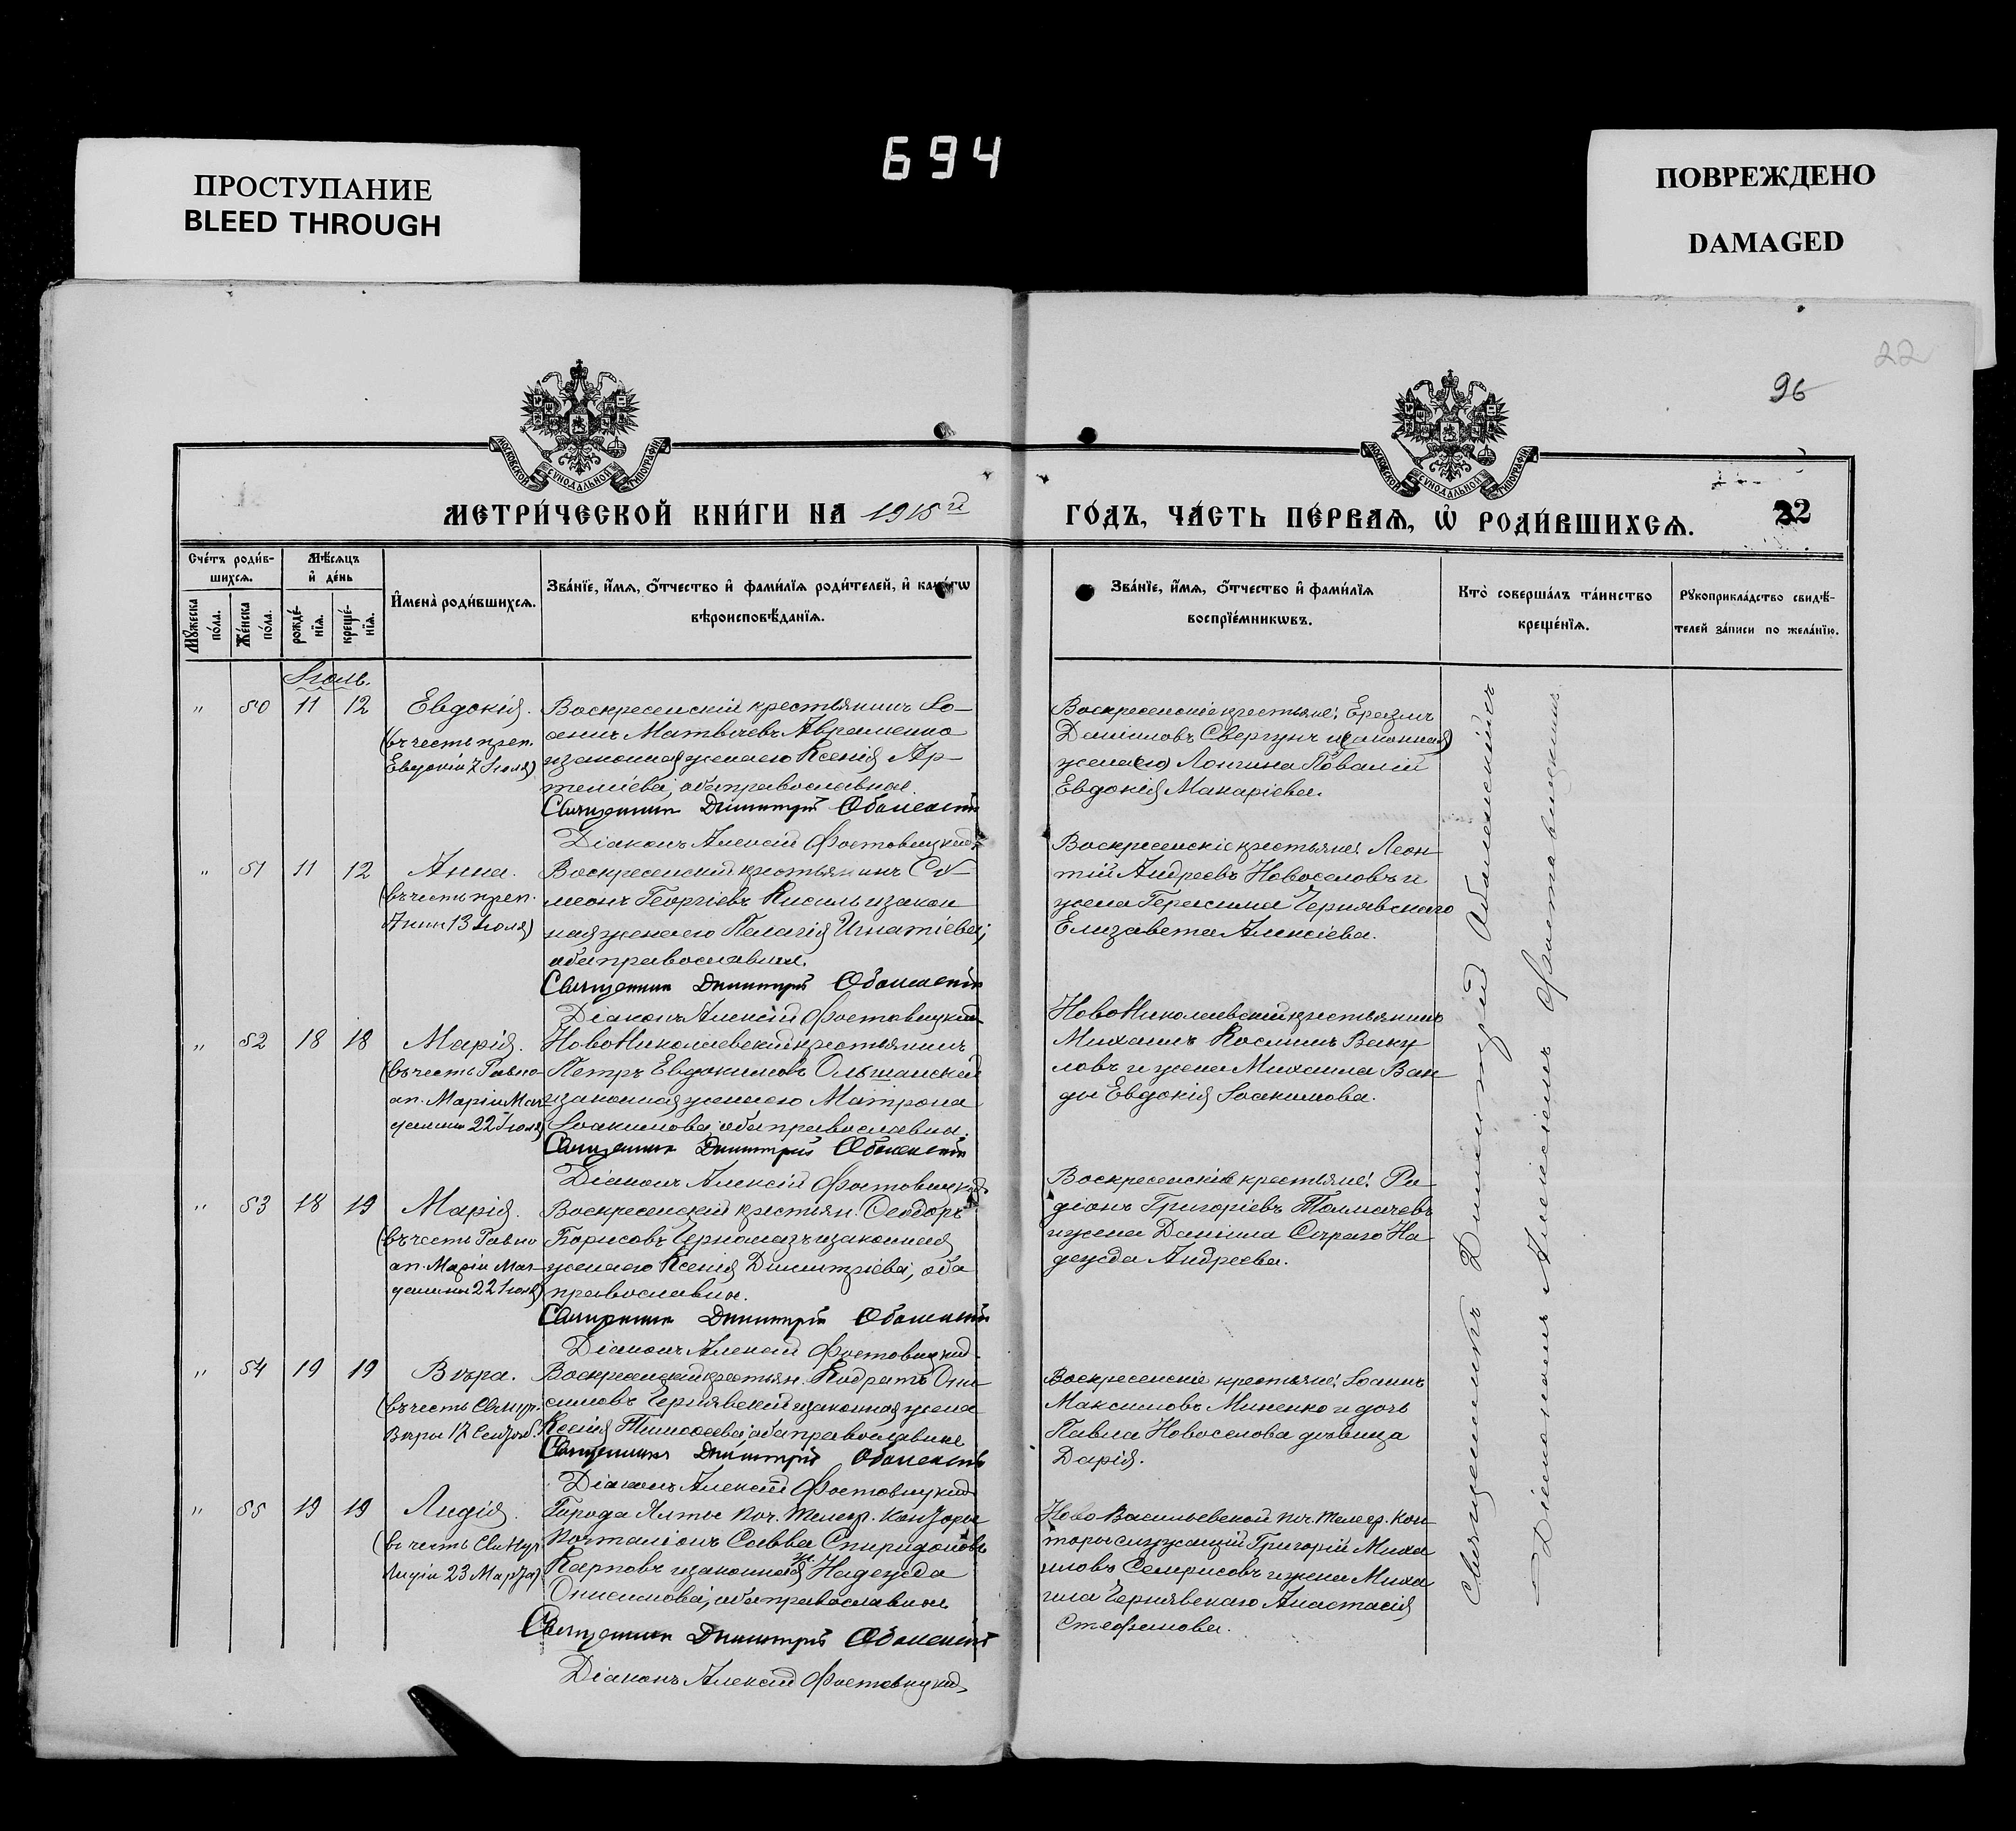 694
ПРОСТУПАНИЕ
BLEED THROUGH
ПОВРЕЖДЕНО
DAMAGED
22
96
МОСКОВСКОЙ СѴНОДАЛЬНОЙ ТИПОГРАФІИ
МОСКОВСКОЙ СѴНОДАЛЬНОЙ ТИПОГРАФІИ
МЕТРИ́ЧЕСКОЙ КНИ́ГИ НА 1915й
ГО́ДЪ, ЧА́СТЬ ПЕ́РВАѦ, Ѡ҆ РОДИ́ВШИХСѦ.
22
Сче́тъ роди́в-
шихсѧ.
Мꙋ́жеска по́ла.
Же́нска по́ла.
Мѣ́сѧцъ
и҆ де́нь
рожде́-
нїѧ.
креще́-
нїѧ.
И҆мена̀ роди́вшихсѧ.
Зва́нїе, и҆́мѧ, ѻ҆́тчество и҆ фами́лїѧ роди́телей, и҆ како́гѡ
вѣроисповѣ́данїѧ.
Зва́нїе, и҆́мѧ, ѻ҆́тчество и҆ фами́лїѧ
воспрїе́мникѡвъ.
Кто̀ соверша́лъ та́инство
креще́нїѧ.
Рꙋкоприкла́дство свидѣ́-
телей за́писи по жела́нїю.
Іюль.
" 50 11 12 Евдокія.
(въ честь преп.
Евдокіи 7 Іюля)
Воскресенскій крестьянинъ Іо-
аннъ Матвѣевъ Авраменко
и законная жена его Ксенія Ар-
теміева, оба православные.
Священникъ Димитрій Оболенскій
Діаконъ Алексій Фостовицкій
Воскресенскіе крестьяне: Еразмъ
Даниловъ Свергунъ и (законная)
жена (его) Лонгина Повалій
Евдокія Макаріева.
" 51 11 12 Анна.
(въ честь преп.
Анны 13 Іюля)
Воскресенскій крестьянинъ Си-
меонъ Георгіевъ Кисиль и закон
ная жена его Пелагія Игнатіева;
оба православные.
Священникъ Димитрій Оболенскій
Діаконъ Алексій Фостовицкій
Воскресенскіе крестьяне: Леон-
тій Андреевъ Новоселовъ и
жена Герасима Чернявскаго
Елизавета Алексіева.
" 52 18 18 Марія.
(въ честь Равно-
ап. Маріи Маг-
далины 22 Іюля)
НовоНиколаевскій крестьянинъ
Петръ Евдокимовъ Ольшанскій
и законная жена его Матрона
Іоакимова, оба православны.
Священникъ Димитрій Оболенскій
Діаконъ Алексій Фостовицкій
НовоНиколаевскій крестьянинъ
Михаилъ Косминъ Ваку
ловъ и жена Михаила Ван-
ды Евдокія Іоакимова.
" 53 18 19 Марія.
(въ честь Равно
ап. Маріи Маг-
далины 22 Іюля)
Воскресенскій крестьян. Ѳеодоръ
Борисовъ Черномазъ и законная
жена его Ксенія Димитріева, оба
православны.
Священникъ Димитрій Оболенскій
Діаконъ Алексій Фостовицкій
Воскресенскіе крестьяне: Ро-
діонъ Григоріевъ Толмачевъ
и жена Даніила Сѣраго На
дежда Андреева.
" 54 19 19 Вѣра.
(въ честь Св. муч.
Вѣры 17 Сентяб.
Воскресенскій крестьян. Кодратъ Они-
симовъ Чернявскій и законная жена
Ксенія Тимоѳеева, оба православные
Священникъ Димитрій Оболенскій
Діаконъ Алексій Фостовицкій
Воскресенскіе крестьяне: Іоаннъ
Максимовъ Миненко и дочь
Павла Новоселова дѣвица
Дарія.
" 55 19 19 Лидія.
(въ честь Св. Муч.
Лидіи 23 Марта)
Города Ялты поч. телегр. конторы
почталіонъ Савва Спиридоновъ
Карповъ и законная ж. Надежда
Онисимова, оба православные
Священникъ Димитрій Оболенскій
Діаконъ Алексій Фостовицкій
Ново Васильевской поч. телегр. кон-
торы служащій Григорій Миха
иловъ и жена Миха
ила Чернявскаго Анастасія
Стефанова.
Священникъ Димитрій Оболенскій
Діакономъ Алексіемъ Фостовицкимъ